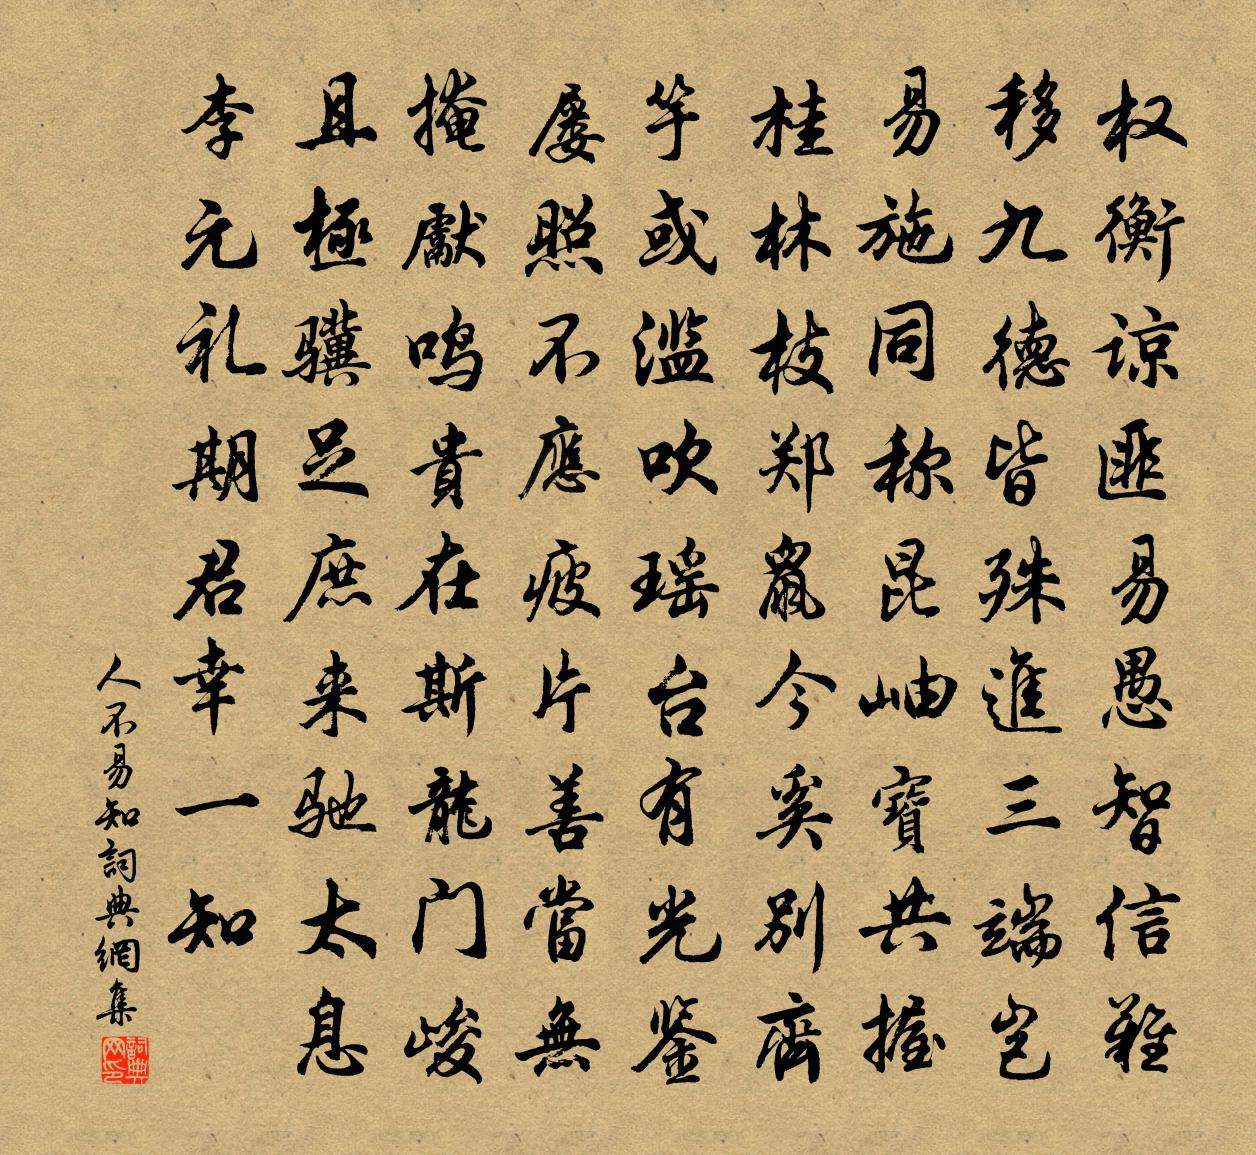 权衡谅匪易愚智信難
移九德皆殊進三端岂
易施同称昆岫寶共握
桂林枝郑鼠今奚别齊
竽或滥吹瑶台有光鉴
屡照不應疲片善當無
掩獻鸣貴在斯龍门峻
且極骥足庶来驰太息
李元礼期君幸一知
人不易知詞典網集
詞典网印